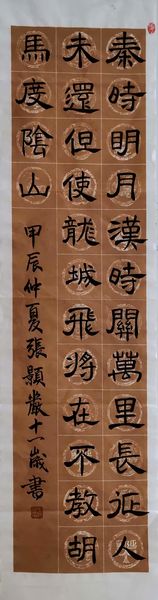 秦時明月漢時關萬里長征人
未還但使龍城飛將在不教胡
馬度陰山
甲辰仲夏張十一歲書